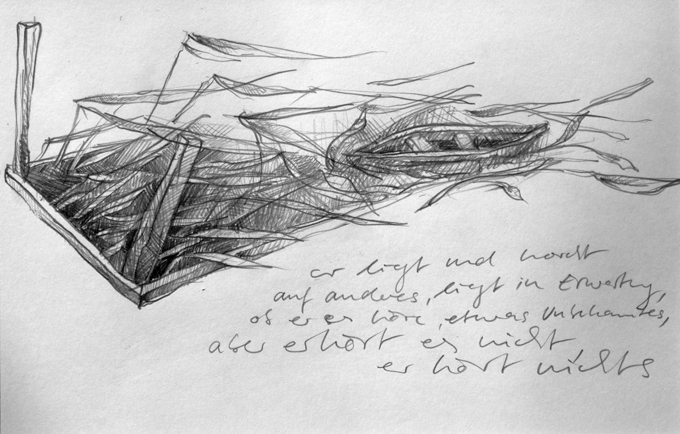 er liegt und horcht
auf anderes, liegt in Erwartung,
ob er es höre, etwas Unbekanntes,
aber er hört es nicht
er hört nichts